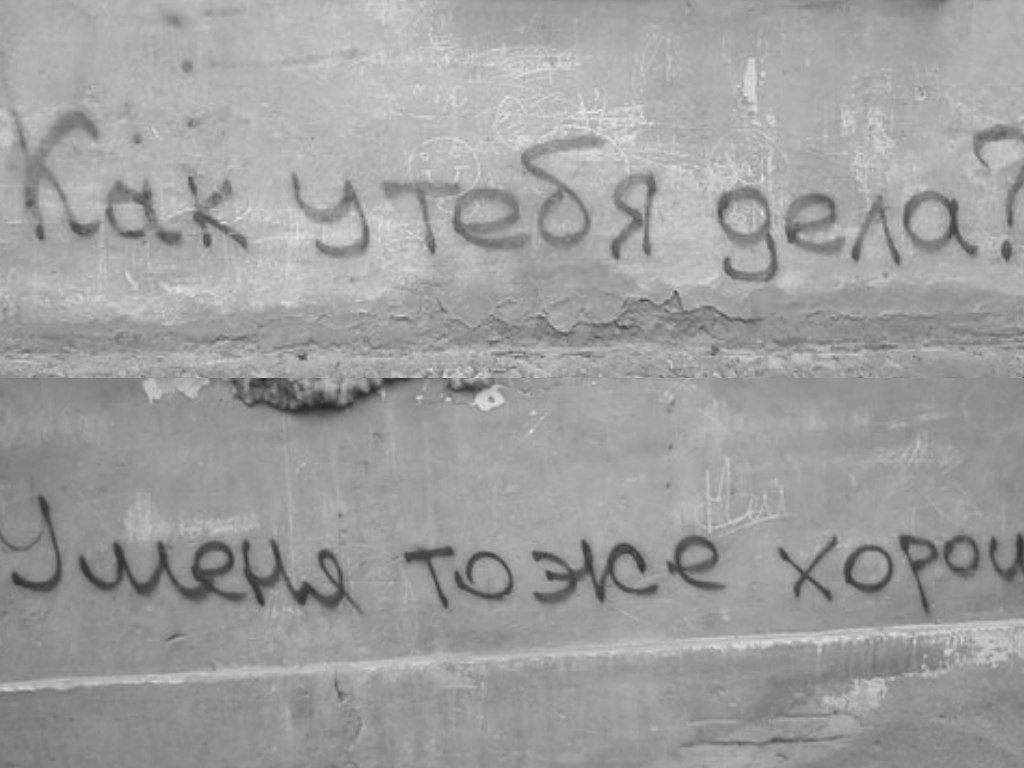 Как у тебя дела?
У меня тоже хорош